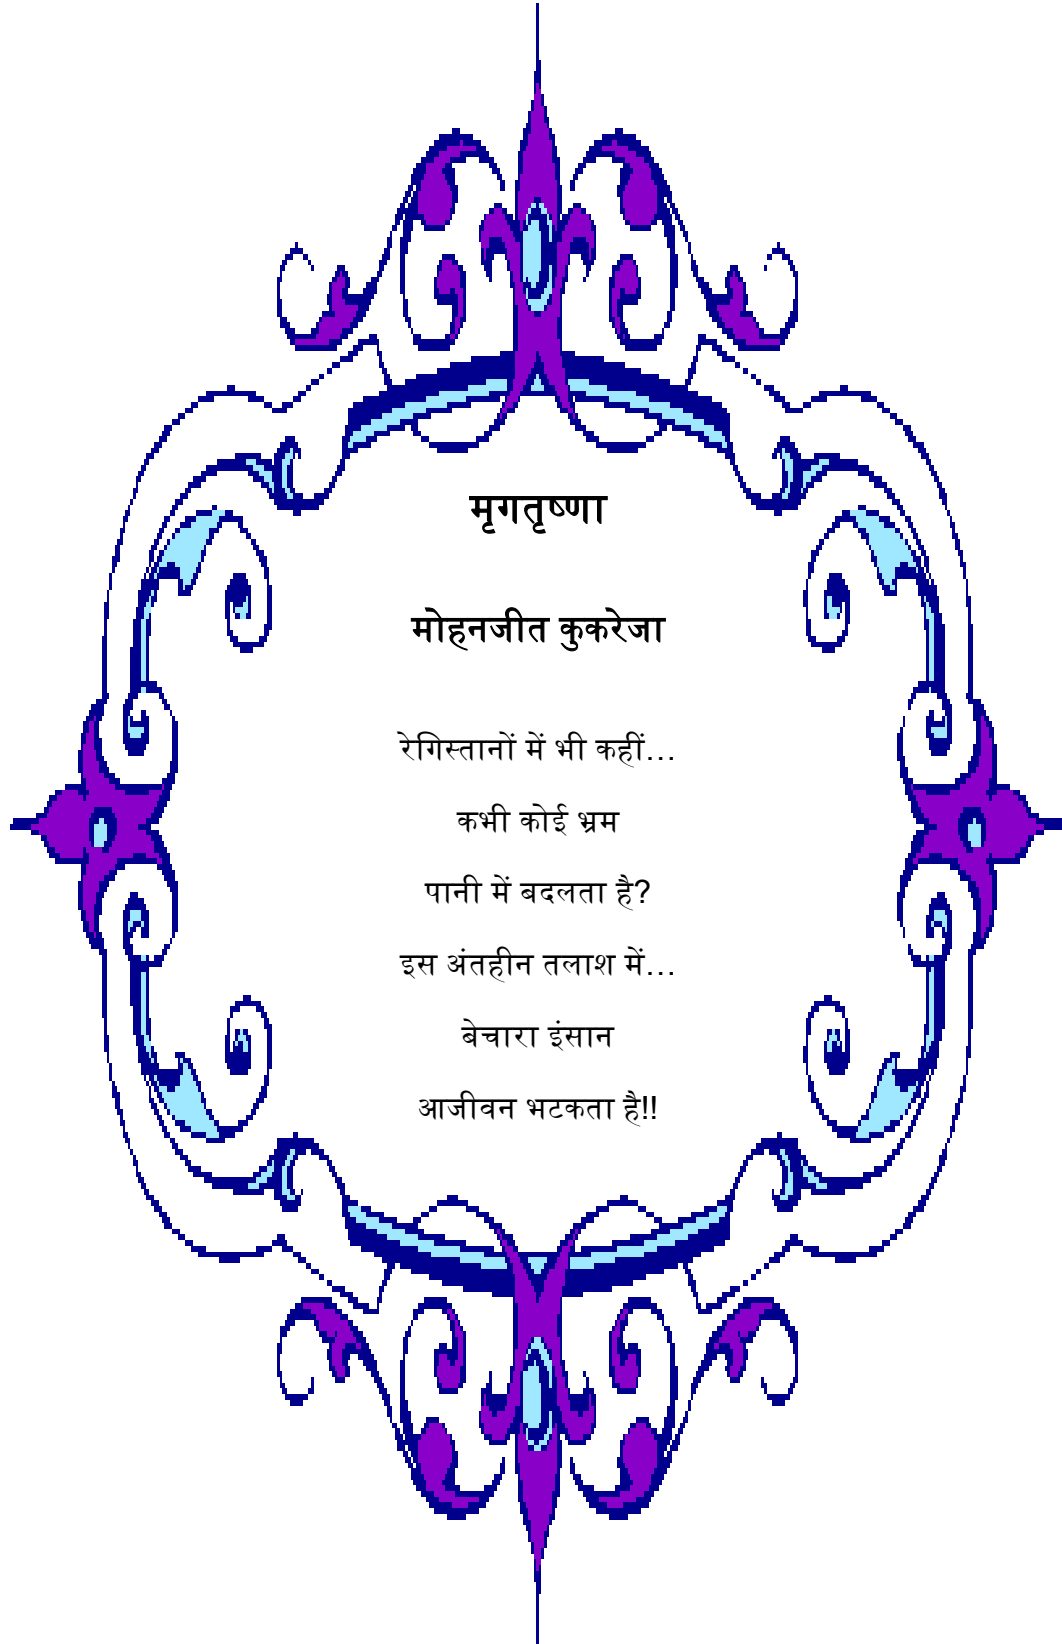 मृगतृष्णा
मोहनजीत कुकरेजा
रेगिस्तानों में भी कहीं...
कभी कोई भ्रम
पानी में बदलता है?
इस अंतहीन तलाश में...
बेचारा इंसान
आजीवन भटकता है!!